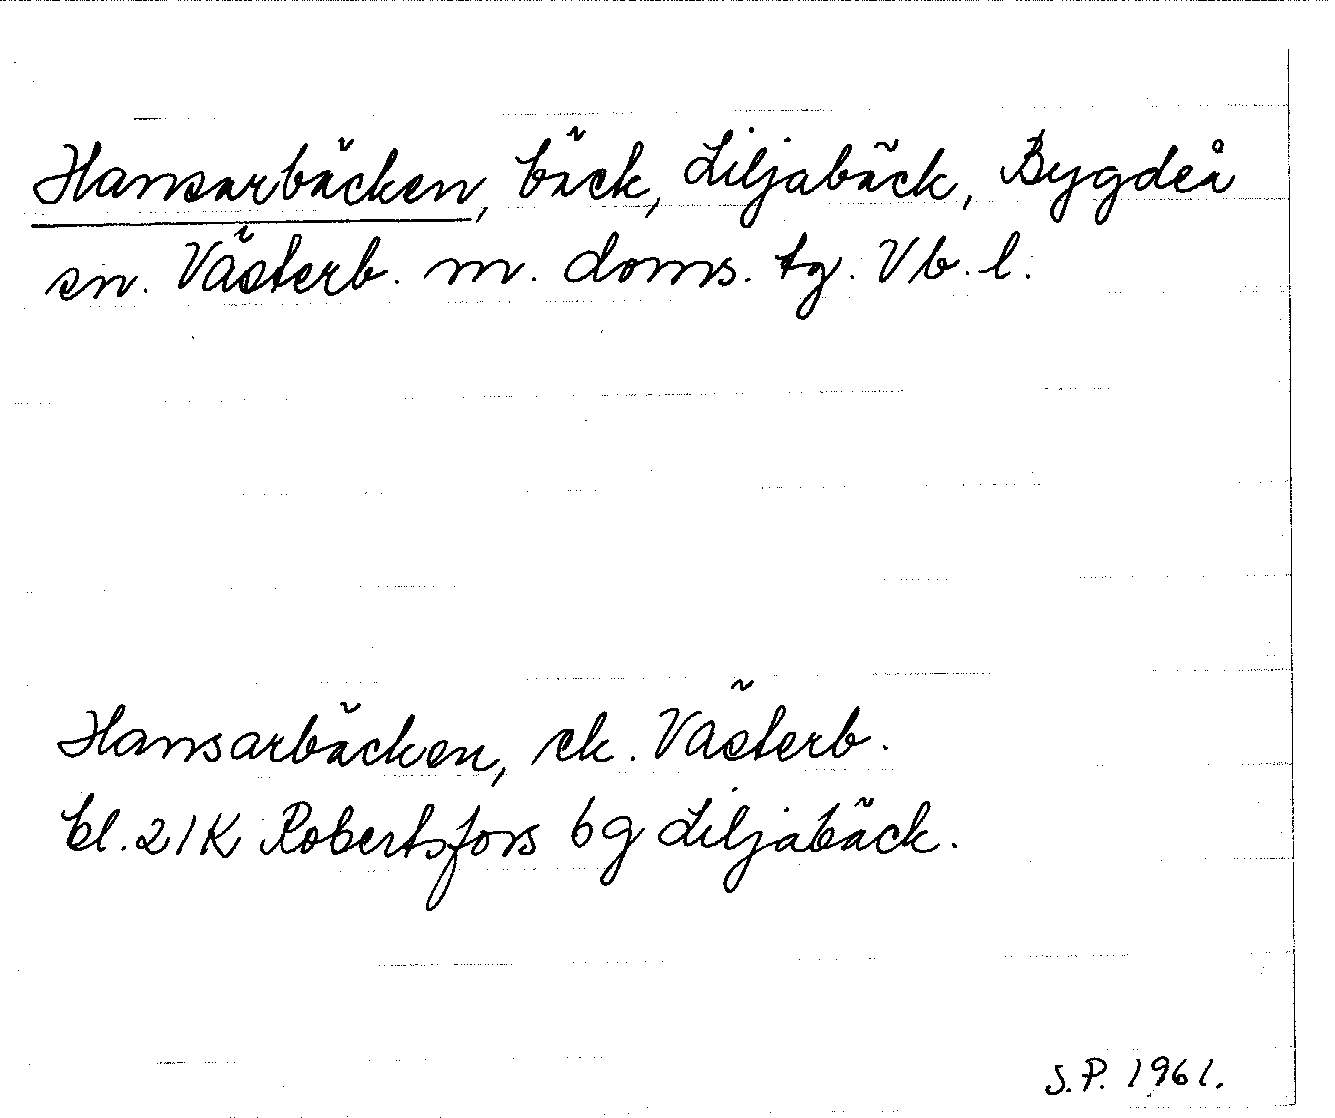 Hansarbäcken, bäck, Liljabäck, Bygdeå
sn. Västerb. m. doms. tg. Vb. l.
Hansarbäcken, ek. Västerb.
bl. 21K Robertsfors 6g Liljabäck.
S.P. 1961.